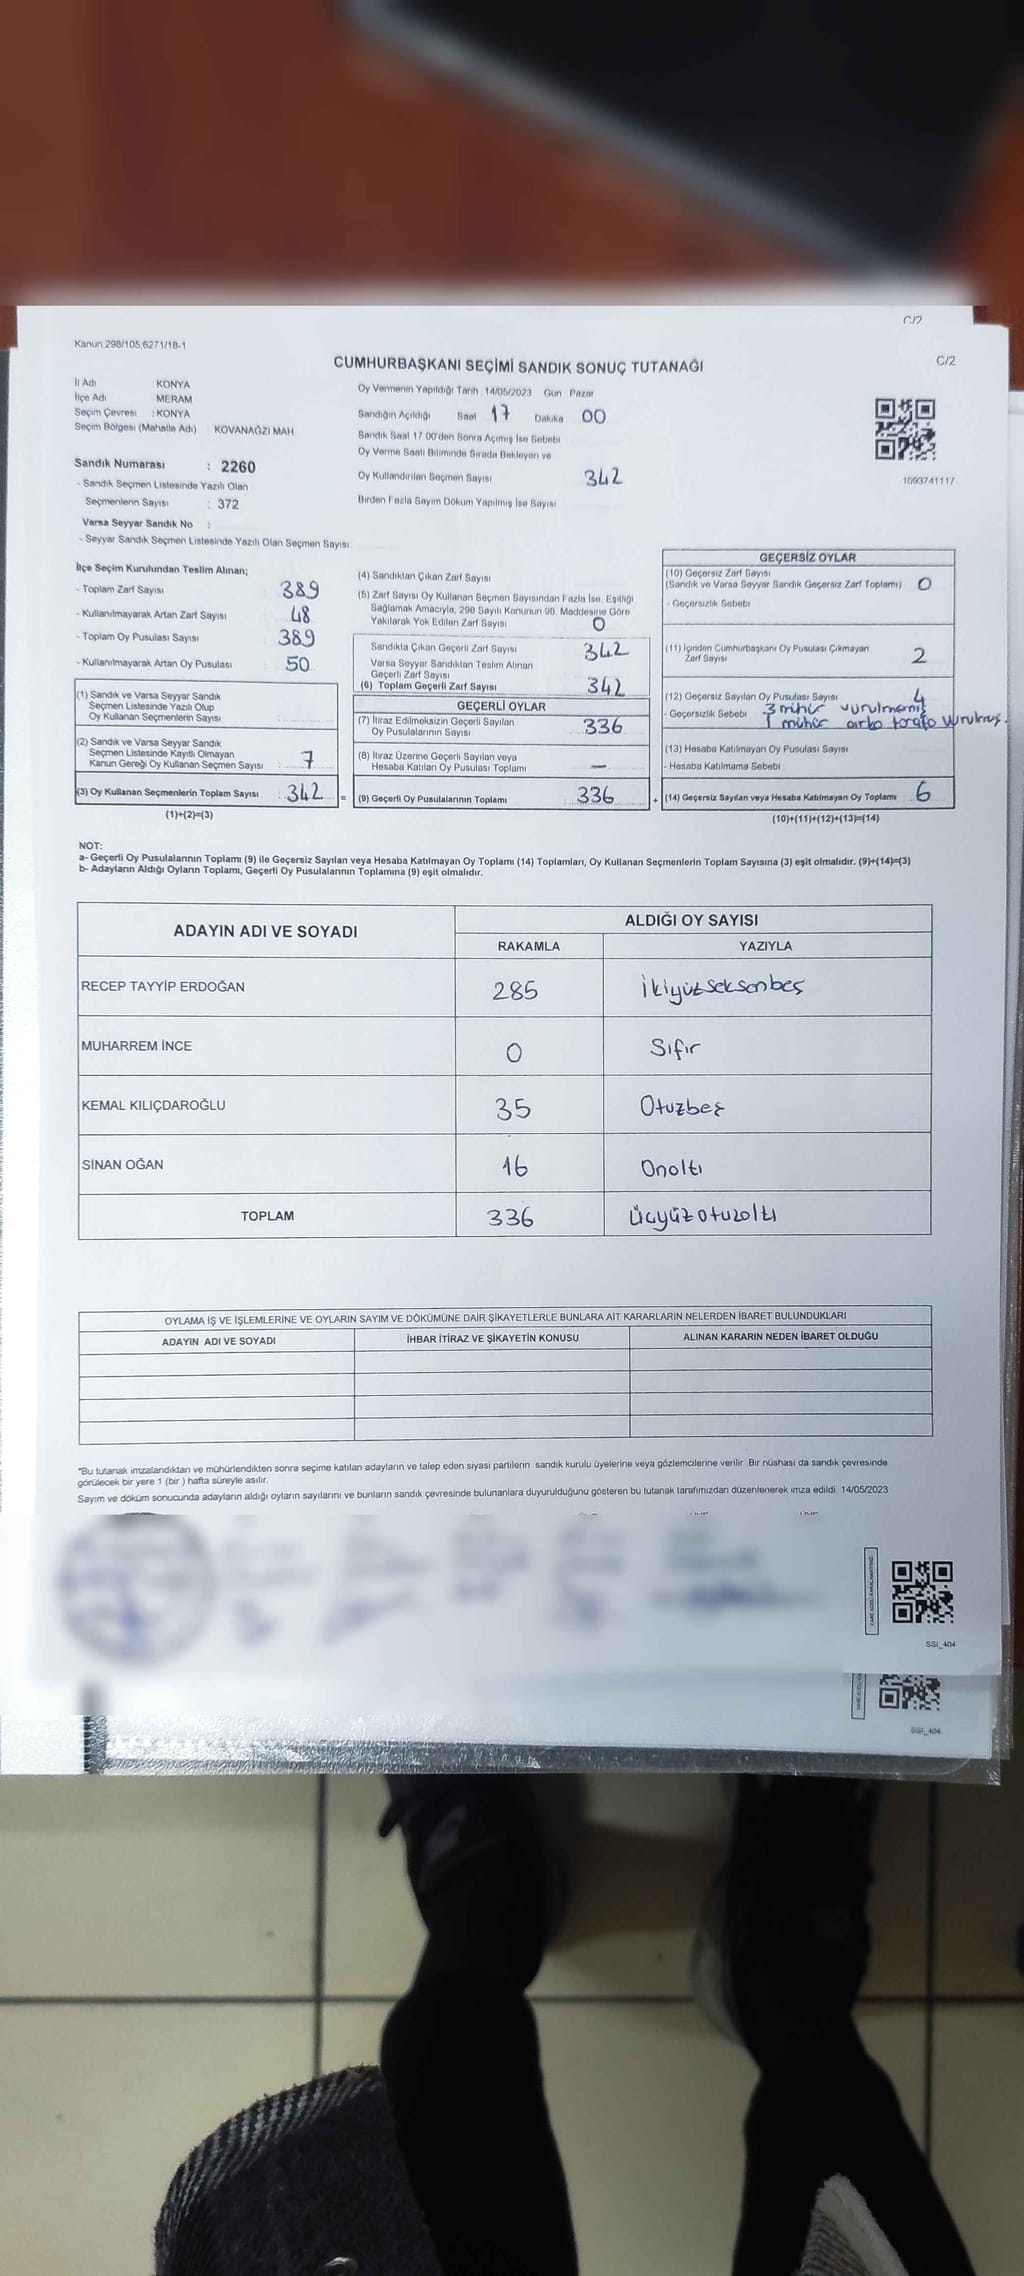 C/2
Kanun,298/105,6271/18-1
C/2
CUMHURBAŞKANI SEÇİMİ SANDIK SONUÇ TUTANAĞI
İl Adı KONYA
İlçe Adı MERAM
Seçim Çevresi : KONYA
Seçim Bölgesi (Mahalle Adı) KOVANAĞZI MAH
Sandık Numarası : 2260
- Sandık Seçmen Listesinde Yazılı Olan
Seçmenlerin Sayısı : 372
Varsa Seyyar Sandık No :
- Seyyar Sandık Seçmen Listesinde Yazılı Olan Seçmen Sayısı
Oy Vermenin Yapıldığı Tarih 14/05/2023 Gün Pazar
Sandığın Açıldığı Saat 17 Dakika 00
Sandık Saat 17 00'den Sonra Açımış İse Sebebi
Oy Verme Saati Bitiminde Sırada Bekleyen ve
Oy Kullandırılan Seçmen Sayısı 342
Birden Fazla Sayım Döküm Yapılmış İse Sayısı
1093741117
İlçe Seçim Kurulundan Teslim Alınan;
- Toplam Zarf Sayısı 389
- Kullanılmayarak Artan Zarf Sayısı 48
- Toplam Oy Pusulası Sayısı 389
- Kullanılmayarak Artan Oy Pusulası 50
(1) Sandık ve Varsa Seyyar Sandık
Seçmen Listesinde Yazılı Olup
Oy Kullanan Seçmenlerin Sayısı
(2) Sandık ve Varsa Seyyar Sandık
Seçmen Listesinde Kayıtlı Olmayan
Kanun Gereği Oy Kullanan Seçmen Sayısı 7
(3) Oy Kullanan Seçmenlerin Toplam Sayısı : 342 =
(1)+(2)=(3)
(4) Sandıktan Çıkan Zarf Sayısı
(5) Zarf Sayısı Oy Kullanan Seçmen Sayısından Fazla İse, Eşitliği
Sağlamak Amacıyla, 298 Sayılı Kanunun 98. Maddesine Göre
Yakılarak Yok Edilen Zarf Sayısı 0
Sandıkta Çıkan Geçerli Zarf Sayısı 342
Varsa Seyyar Sandıktan Teslim Alınan
Geçerli Zarf Sayısı
(6) Toplam Geçerli Zarf Sayısı 342
GEÇERLİ OYLAR
(7) İtiraz Edilmeksizin Geçerli Sayılan
Oy Pusulalarının Sayısı 336
(8) İtiraz Üzerine Geçerli Sayılan veya
Hesaba Katılan Oy Pusulası Toplamı —
(9) Geçerli Oy Pusulalarının Toplamı : 336 +
GEÇERSİZ OYLAR
(10) Geçersiz Zarf Sayısı
(Sandık ve Varsa Seyyar Sandık Geçersiz Zarf Toplamı) 0
- Geçersizlik Sebebi
(11) İçinden Cumhurbaşkanı Oy Pusulası Çıkmayan
Zarf Sayısı 2
(12) Geçersiz Sayılan Oy Pusulası Sayısı 4
- Geçersizlik Sebebi 3 mühür vurulmamış
1 mühür arka tarafa vurulmuş.
(13) Hesaba Katılmayan Oy Pusulası Sayısı
- Hesaba Katılmama Sebebi
(14) Geçersiz Sayılan veya Hesaba Katılmayan Oy Toplamı 6
(10)+(11)+(12)+(13)=(14)
NOT:
a- Geçerli Oy Pusulalarının Toplamı (9) ile Geçersiz Sayılan veya Hesaba Katılmayan Oy Toplamı (14) Toplamları, Oy Kullanan Seçmenlerin Toplam Sayısına (3) eşit olmalıdır. (9)+(14)=(3)
b- Adayların Aldığı Oyların Toplamı, Geçerli Oy Pusulalarının Toplamına (9) eşit olmalıdır.
ADAYIN ADI VE SOYADI ALDIĞI OY SAYISI
RAKAMLA YAZIYLA
RECEP TAYYİP ERDOĞAN 285 İkiyüzseksenbeş
MUHARREM İNCE 0 Sıfır
KEMAL KILIÇDAROĞLU 35 Otuzbeş
SİNAN OĞAN 16 Onaltı
TOPLAM 336 Üçyüzotuzaltı
OYLAMA İŞ VE İŞLEMLERİNE VE OYLARIN SAYIM VE DÖKÜMÜNE DAİR ŞİKAYETLERLE BUNLARA AİT KARARLARIN NELERDEN İBARET BULUNDUKLARI
ADAYIN ADI VE SOYADI İHBAR İTİRAZ VE ŞİKAYETİN KONUSU ALINAN KARARIN NEDEN İBARET OLDUĞU
*Bu tutanak imzalandıktan ve mühürlendikten sonra seçime katılan adayların ve talep eden siyasi partilerin sandık kurulu üyelerine veya gözlemcilerine verilir. Bir nüshası da sandık çevresinde
görülecek bir yere 1 (bir) hafta süreyle asılır.
Sayım ve döküm sonucunda adayların aldığı oyların sayılarını ve bunların sandık çevresinde bulunanlara duyurulduğunu gösteren bu tutanak tarafımızdan düzenlenerek imza edildi. 14/05/2023
SSI_404
SSI_404